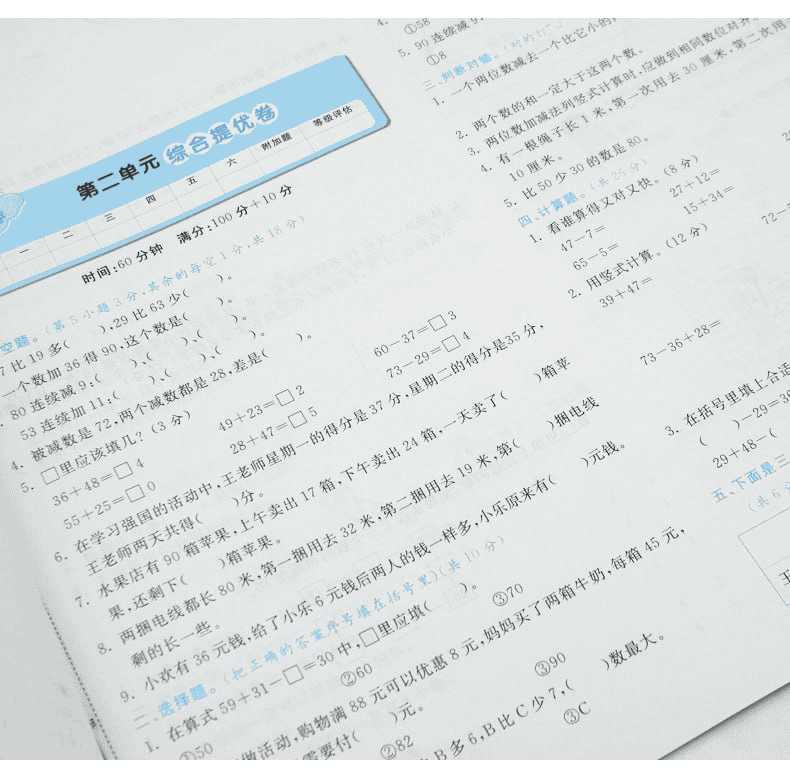 第二单元 综合提优卷
一 二 三 四 五 六 附加题 等级评估
时间:60 分钟 满分:100 分+10 分
空题。(第 5 小题 3 分,其余的每空 1 分,共 18 分)
7 比 19 多( ),29 比 63 少( )。
一个数加 36 得 90,这个数是( )。
80 连续减 9:( )、( )、( )。
53 连续加 11:( )、( )、( )。
4. 被减数是 72,两个减数都是 28,差是( )。
5. □里应该填几?(3 分)
36+48=□4 49+23=□2 60-37=□3
55+25=□0 28+47=□5 73-29=□4
6. 在学习强国的活动中,王老师星期一的得分是 37 分,星期二的得分是35 分,
王老师两天共得( )分。
7. 水果店有 90 箱苹果,上午卖出 17 箱,下午卖出 24 箱,一天卖了( )箱苹
果,还剩下( )箱苹果。
8. 两捆电线都长 80 米,第一捆用去 32 米,第二捆用去 19 米,第( )捆电线
剩的长一些。
9. 小欢有 36 元钱,给了小乐 6 元钱后两人的钱一样多,小乐原来有( )元钱。
二、选择题。(把正确的答案序号填在括号里)(共 10 分)
1. 在算式 59+31-□=30 中,□里应填( )。
①50 ②60 ③70
做活动,购物满 88 元可以优惠 8 元,妈妈买了两箱牛奶,每箱 45 元,
需要付( )元。
②82 ③90
B 多 6,B 比 C 少 7,( )数最大。
③C
4.
①58
5. 90 连续减 9
①8
三、判断对错。
1. 一个两位数减去一个比它小的
2. 两个数的和一定大于这两个数。
3. 两位数加减法列竖式计算时,应做到相同数位对齐
4. 有一根绳子长 1 米,第一次用去 30 厘米,第二次用
10 厘米。
5. 比 50 少 30 的数是 80。
四、计算题。(共 25 分)
1. 看谁算得又对又快。(8 分)
47-7= 27+12=
65-5= 15+34=
2. 用竖式计算。(12 分)
39+47= 72-
73-36+28=
3. 在括号里填上合适
( )-29=36
29+48-(
五、下面是三
(共 6 分
王